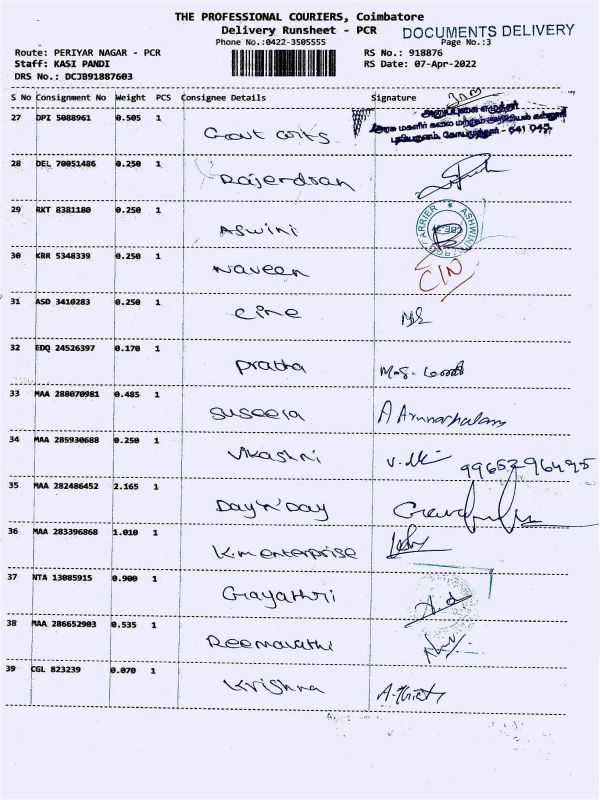 THE PROFESSIONAL COURIERS, Coimbatore
Delivery Runsheet - PCR
DOCUMENTS DELIVERY
Phone No.:0422-3505555
Page No.:3
Route: PERIYAR NAGAR - PCR
RS No.: 918876
Staff: KASI PANDI
RS Date: 07-Apr-2022
DRS No.: DCJB91887603
S No Consignment No Weight PCS Consignee Details Signature
27 DPI 5088961 0.505 1 Govt arts
அரசு மகளிர் கலை மற்றும் அறிவியல் கல்லூரி
புலியகுளம், கோயமுத்தூர் - 641 045.
28 DEL 70051486 0.250 1 Rajerdsan
29 RKT 8381180 0.250 1 Aswini
ASHWINI
30 KRR 5348339 0.250 1 Naveen CIN
31 ASD 3410283 0.250 1 Cine
32 EDQ 24526397 0.170 1 Pratha
33 MAA 288070981 0.485 1 Suseela A Arunachalam
34 MAA 285930688 0.250 1 Vikashni
9965296495
35 MAA 282486452 2.165 1 Day'n'Day
36 MAA 283396868 1.010 1 K.m enterprise
37 NTA 13085915 0.900 1 Gayathri
38 MAA 286652903 0.535 1 Reemavathi
39 CGL 823239 0.070 1 Krishna